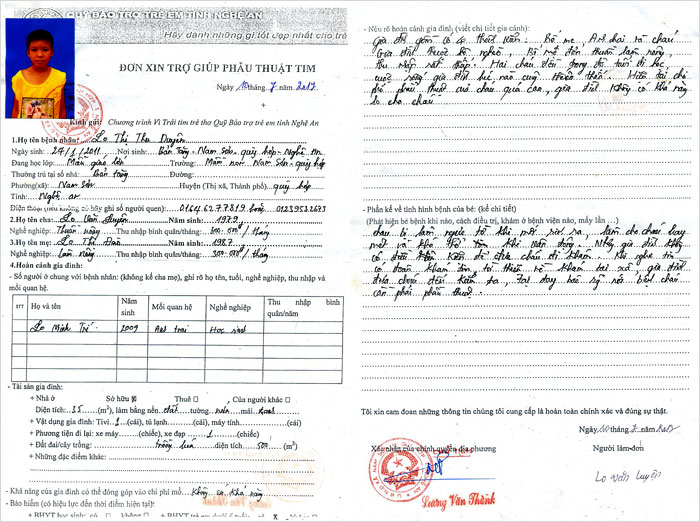 QUỸ BẢO TRỢ TRẺ EM TỈNH NGHỆ AN
Hãy dành những gì tốt đẹp nhất cho trẻ
ĐƠN XIN TRỢ GIÚP PHẪU THUẬT TIM
Ngày 10 tháng 7 năm 2017
Kính gửi: Chương trình Vì Trái tim trẻ thơ Quỹ Bảo trợ trẻ em tỉnh Nghệ An
1.Họ tên bệnh nhân: Lo Thị Thu Duyên
Ngày sinh: 24/1/2011 Nơi sinh: Bản Tăng - Nam Sơn - quỳ hợp - Nghệ Tĩn
Đang học lớp: Mẫu giáo lớn Trường: Mầm non Nam Sơn - quỳ hợp
Thường trú tại số nhà: Bản tăng Đường:
Phường(xã): Nam Sơn Huyện (Thị xã, Thành phố) quỳ hợp
Tỉnh: Nghệ an
Điện thoại (nếu không có hãy ghi số người quen): 01646277819 hoặc
2.Họ tên cha: Lo Văn Luyện Năm sinh: 1979
Nghề nghiệp: Thuần nông Thu nhập bình quân/tháng: 300.000đ/tháng
3.Họ tên mẹ: Lo Thị Đào Năm sinh: 1987
Nghề nghiệp: Làm nông Thu nhập bình quân/tháng: 300.000đ/tháng
4.Hoàn cảnh gia đình:
- Số người ở chung với bệnh nhân: (không kể cha mẹ), ghi rõ họ tên, tuổi, nghề nghiệp, thu nhập và
mối quan hệ.
STT Họ và tên Năm sinh Mối quan hệ Nghề nghiệp Thu nhập bình quân/năm
Lo Minh Trí 2009 Anh trai Học sinh
- Tài sản gia đình:
+ Nhà ở Sở hữu Thuê Của người khác
Diện tích: 35 (m²), làm bằng nền đất tường ván mái
+ Vật dụng gia đình: Tivi 1 (cái), tủ lạnh (cái), máy tính (cái)
+ Phương tiện đi lại: xe máy (chiếc), xe đạp 1 (chiếc)
+ Đất đai/cây trồng: trồng lúa diện tích: 500 (m²)
+ Những đặc điểm khác:
- Khả năng của gia đình có thể đóng góp vào chi phí mổ: Không có khả năng
- Bảo hiểm (có hiệu lực đến thời điểm hiện tại):
- Nêu rõ hoàn cảnh gia đình (viết chi tiết gia cảnh):
Gia đình gồm có 4 thành viên. Bố mẹ, Anh trai và cháu
Gia đình thuộc hộ nghèo, Bố mẹ đều thuần làm nông
thu nhập rất thấp. Hai cháu đều trong độ tuổi đi học,
cuộc sống gia đình
phí phẫu thuật của cháu quá cao, gia đình không có khả năng
lo cho cháu
- Phần kể về tình hình bệnh của bé: (kể chi tiết)
(Phát hiện bé bệnh khi nào, cách điều trị, khám ở bệnh viện nào, mấy lần ...)
cháu bị tim
mệt và khó thở tím khi vận động. Nhưng gia đình không
có điều kiện để đưa cháu đi khám. Khi nghe tin
có đoàn khám tim từ thiện về khám tại xã, gia đình
đưa cháu đến kiểm tra, Tại đây bác sỹ nói bệnh cháu
cần phải phẫu thuật.
Tôi xin cam đoan những thông tin chúng tôi cung cấp là hoàn toàn chính xác và đúng sự thật.
Ngày 10 tháng 7 năm 2017
Xác nhận của chính quyền địa phương Người làm đơn
Lương Văn Thành
Lo văn luyện